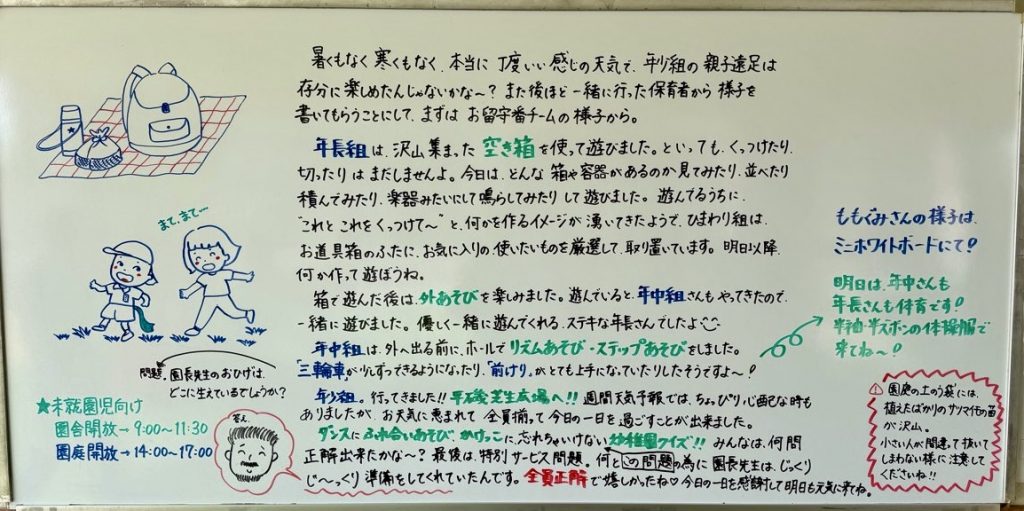 暑くもなく寒くもなく、本当に丁度いい感じの天気で、年少組の親子遠足は
存分に楽しめたんじゃないかな〜？また後ほど一緒に行った保育者から様子を
書いてもらうことにして、まずはお留守番チームの様子から。
年長組は、沢山集まった空き箱を使って遊びました。といっても、くっつけたり、
切ったりはまだしませんよ。今日は、どんな箱や容器があるのか見てみたり、並べたり
積んでみたり、楽器みたいにして鳴らしてみたりして遊びました。遊んでるうちに、
"これとこれをくっつけて〜"と、何かを作るイメージが湧いてきたようで、ひまわり組は、
お道具箱のふたに、お気に入りの使いたいものを厳選して、取り置いています。明日以降、
何か作って遊ぼうね。
箱で遊んだ後は、外あそびを楽しみました。遊んでいると、年中組さんもやってきたので、
一緒に遊びました。優しく一緒に遊んでくれる、ステキな年長さんでしたよ
年中組は、外へ出る前に、ホールでリズムあそび・ステップあそびをしました。
「三輪車」が少しずつできるようになったり、「前けり」がとても上手になっていたりしたそうですよ〜！
年少組。行ってきました!!平石緩芝生広場へ!!週間天気予報では、ちょっぴり心配な時も
ありましたが、お天気に恵まれて全員揃って今日の一日を過ごすことが出来ました。
ダンスにふれ合いあそび、かけっこに、忘れちゃいけない幼稚園クイズ!!みんなは、何問
正解出来たかな〜？最後は、特別サービス問題。何とこの問題の為に園長先生は、じっくり
じ〜っくり準備をしてくれていたんです。全員正解で嬉しかったね♡今日の一日を感謝して明日も元気に来てね。
まて、まて…
問題。園長先生のおひげは、
どこに生えているでしょうか？
答え。
★未就園児向け
園舎開放→9:00〜11:30
園庭開放→14:00〜17:00
ももぐみさんの様子は、
ミニホワイトボードにて!
明日は、年中さんも
年長さんも体育です!
半袖・半ズボンの体操服で
来てね〜!
園庭の土のう袋には、
植えたばかりのサツマイモの苗
が沢山。
小さい人が間違って抜いて
しまわない様に注意して
くださいね!!